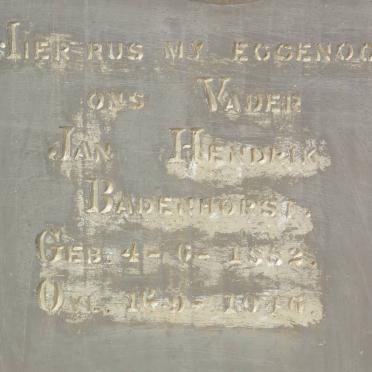 HIER RUS MY EGGENOO
ONS VADER
JAN HENDRIK
BADENHORST.
GEB. 4-6-1882.
OVL.